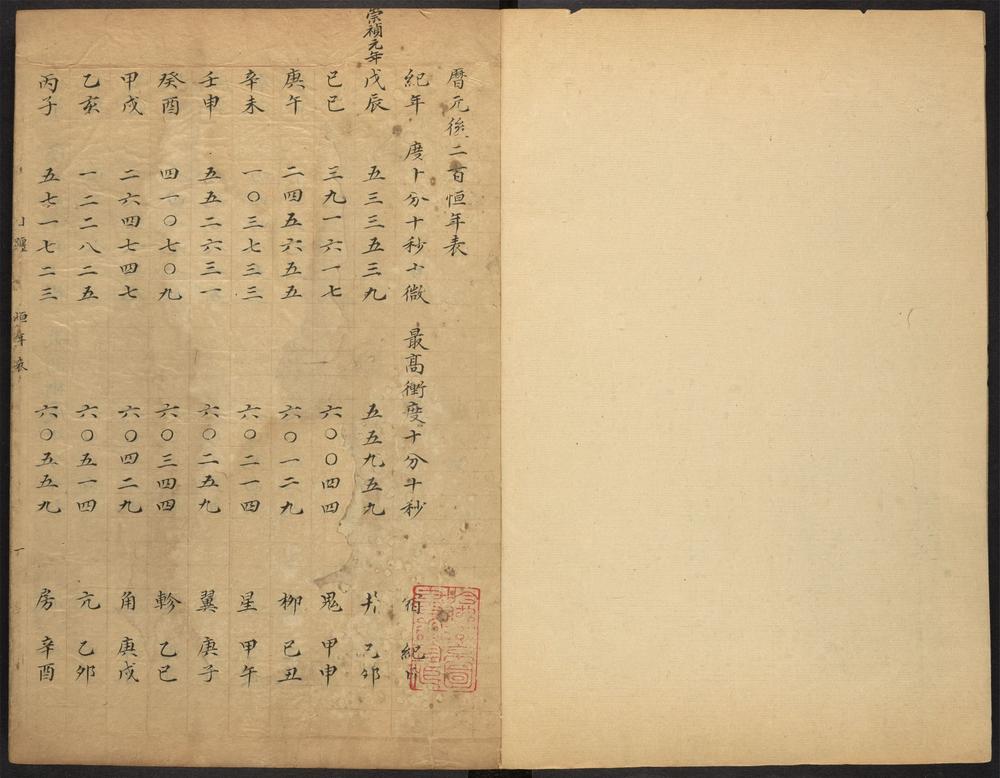 曆元後二百恒年表
紀年 度十分十秒十微 最高衝度十分十秒 宿 紀日
崇禎元年
戊辰 五三三五三九 五五九五九 井 己卯
己巳 三九一六一七 六〇〇四四 鬼 甲申
庚午 二四五六五五 六〇一二九 柳 己丑
辛未 一〇三七三三 六〇二一四 星 甲午
壬申 五五二六三一 六〇二五九 翼 庚子
癸酉 四一〇七〇九 六〇三四四 軫 乙巳
甲戌 二六四七四七 六〇四二九 角 庚戌
乙亥 一二二八二五 六〇五一四 亢 乙卯
丙子 五七一七二三 六〇五五九 房 辛酉
日躔 恒年表